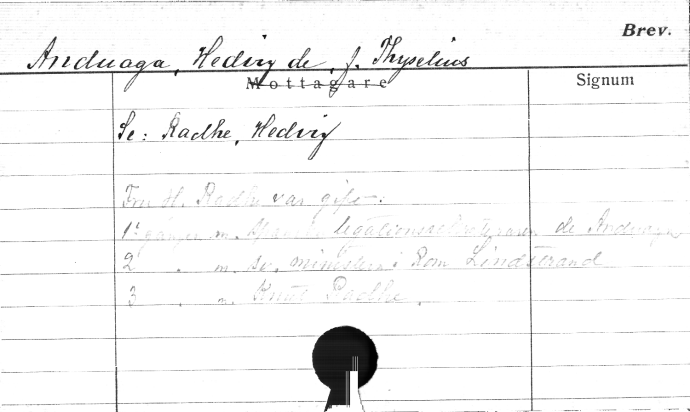 Brev.
Anduaga, Hedvig de, f. Thyselius
Mottagare
Signum
Se: Radhe, Hedvig
Fru H. Radhe var gift:
1:a gången m. Spanske legationssekreteraren de Anduaga
2 . m. sv. ministern i Rom Lindstrand
3 . m. Knut Radhe.